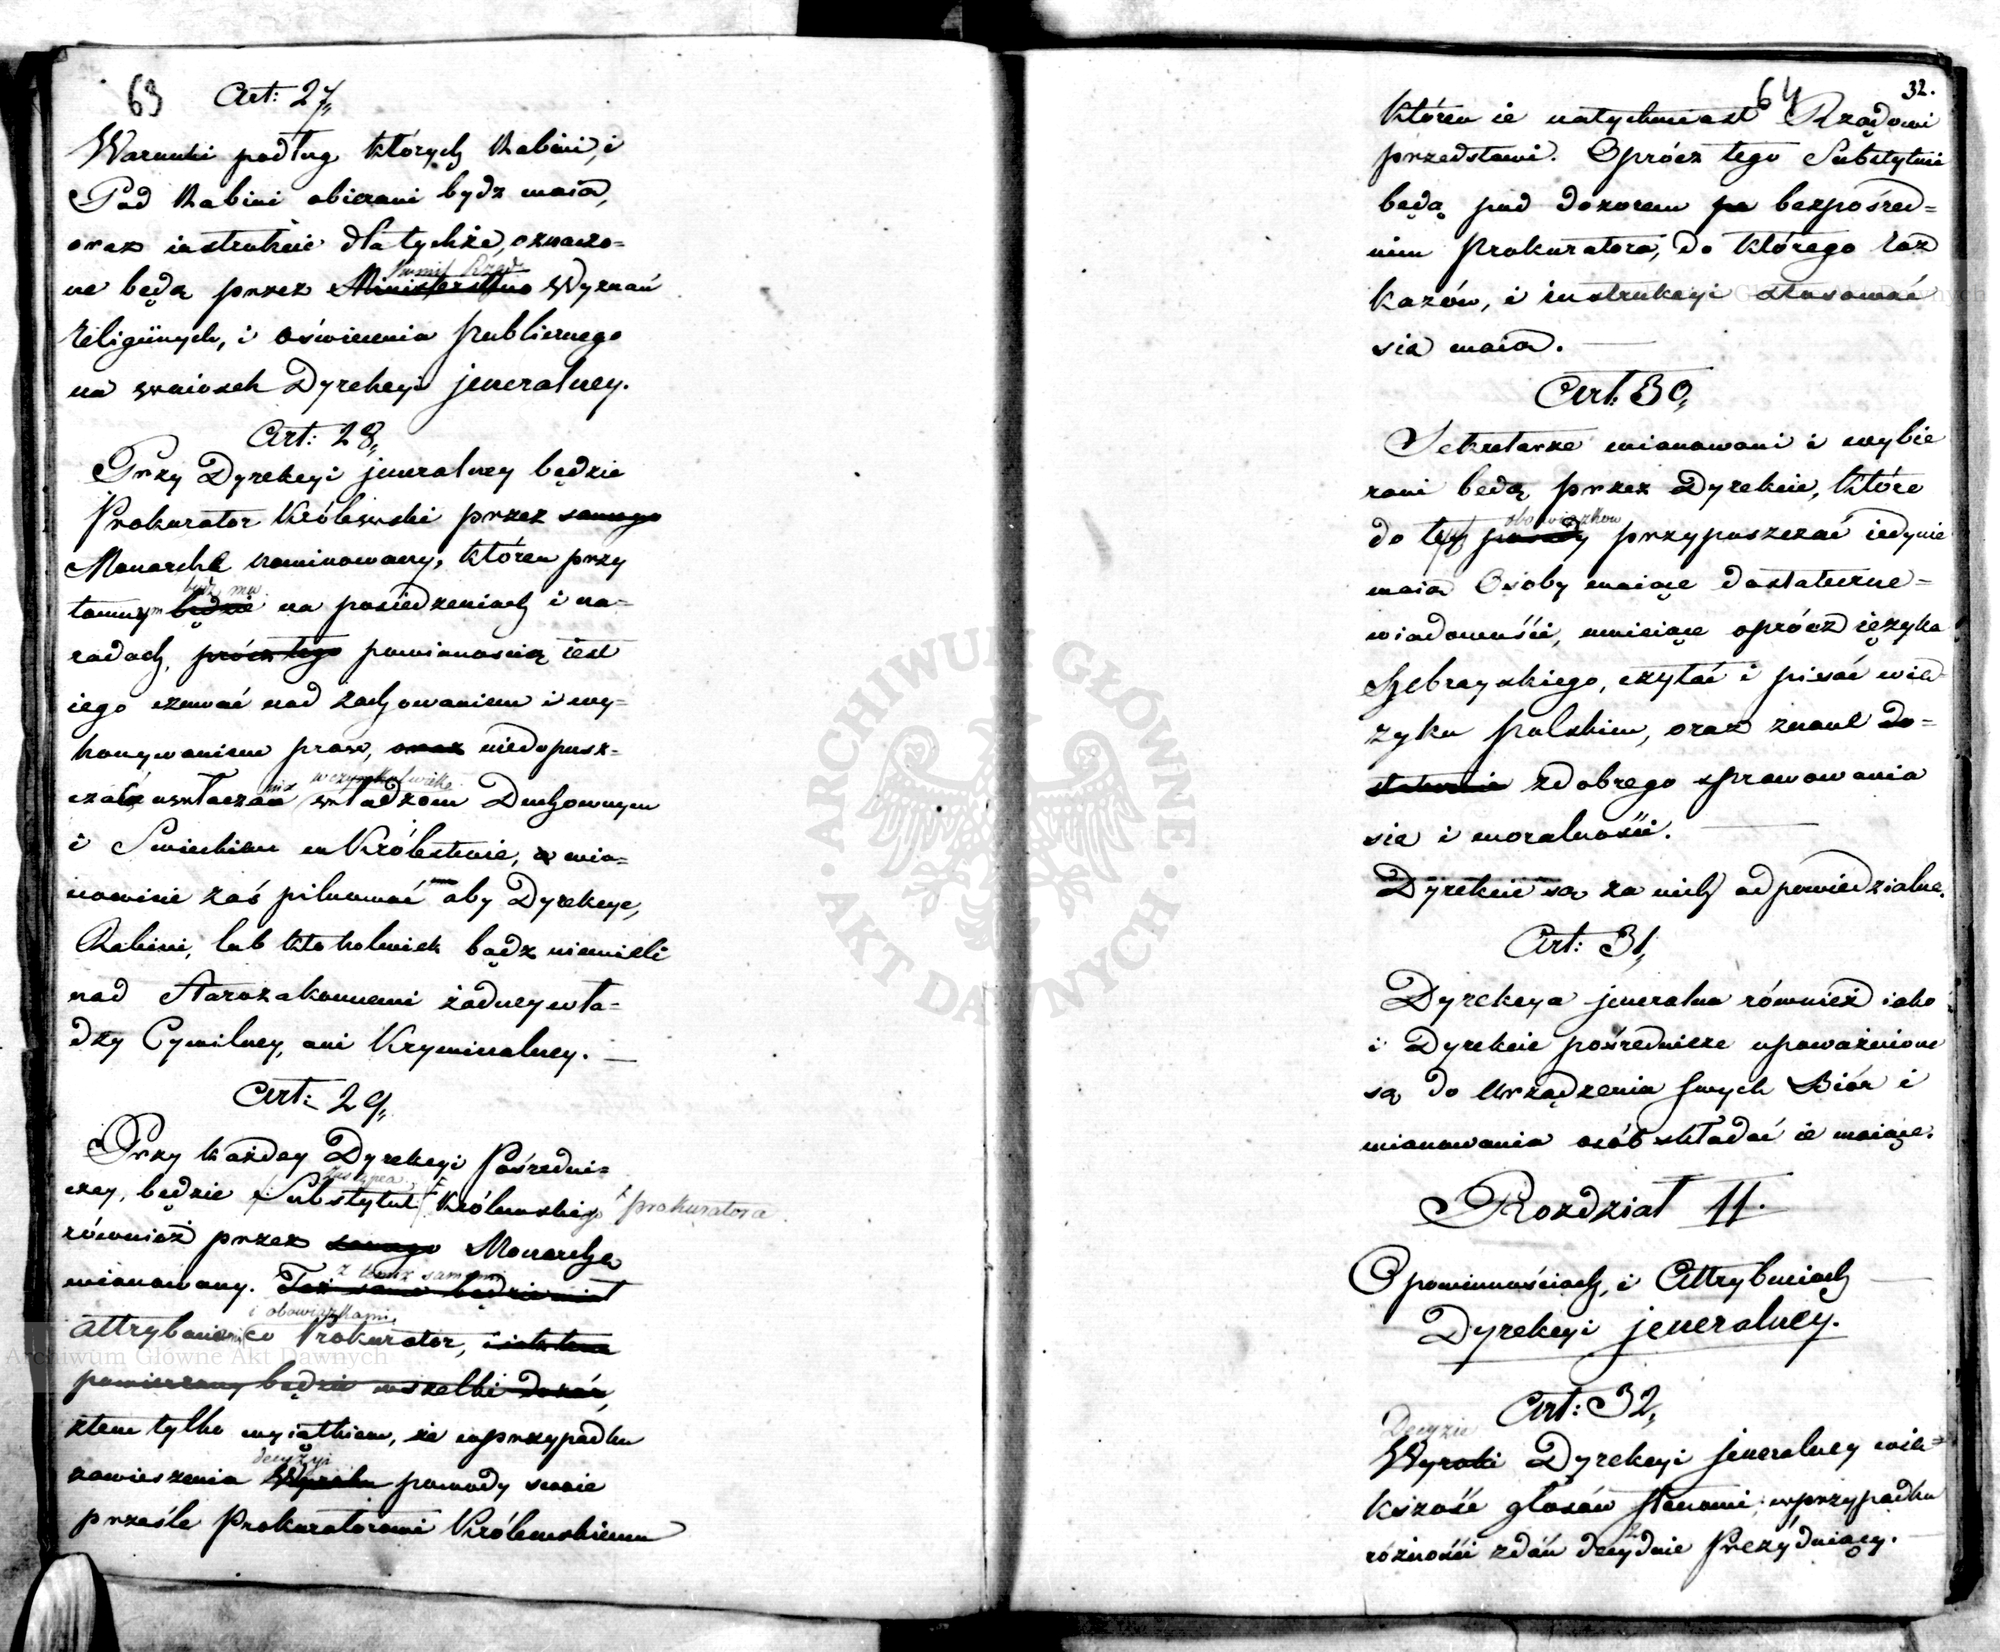 63
Art: 27,,
Warunki podług których Rabini, i
Pod Rabini obierani bydz maią,
oraz instrukcie dla tychże, oznaczo-
ne będą przez Ministerstwo Wyznań
religiinych, i oświecenia publicznego
na wniosek Dyrekcyi jeneralney.
Art: 28,,
Przy Dyrekcyi jeneralney będzie
Prokurator Królewski przez samego
Monarchę nominowany, któren przy
bydz ma
tomnym będzie na posiedzeniach i na-
radach, prócz tego powinnością iest
iego czuwać nad zachowaniem i wy-
konywaniem praw, oraz niedopusz-
wczymkolwiek
czać uwłaczać władzom Duchownym
i Swieckim w Królestwie, a mia-
nowicie zaś pilnować aby Dyrekcye,
Rabini, lub ktokolwiek bądz niemieli
nad Starozakonnemi żadney wła-
dzy Cywilney, ani Kryminalney. —
Art: 29,,
Przy każdey Dyrekcyi Pośredni-
Zastępca
czey, będzie Substytut Królewskiego prokuratora
również przez samego Monarchę
z temiż samemi
mianowany. Też same będzie miał
i obowiązkami
attrybucie co Prokurator, i iak ten
powierzony będzie wszelki dozór,
ztem tylko wyiątkiem, że wprzypadku
decyzyi
zawieszenia Wyroku powody swoie
prześle Prokuratorowi Królewskiemu
64
32.
któren ie natychmiast Rządowi
przedstawi. Oprócz tego Substytuci
będą pod dozorem bezpośred-
nim Prokuratora, do którego roz
kazów, i instrukcyi stosować
się maią. —
Art: 30,,
Sekretarze mianowani i wybie
rani będą przez Dyrekcie, które
obowiązkow
do tey posady przypuszczać iedynie
maią Osoby maiące dostateczne-
wiadomości, umieiące oprócz ięzyka
Hebrayskiego, czytać i pisać wię-
zyku polskim, oraz znane do-
statecznie zdobrego sprawowania
się i moralności. —
Dyrekcie są za nich odpowiedzialne.
Art: 31,,
Dyrekcya jeneralna również iako
i Dyrekcie pośrednicze upoważnione
są do urządzenia swych Biór i
mianowania osób składać ie maiące.
Rozdział II.
O powinnościach, i Attrybuciach —
Dyrekcyi jeneralney.
Art: 32,,
Decyzie
Wyroki Dyrekcyi jeneralney wię-
kszość głosów stanowi, wprzypadku
różności zdań decyduie Prezyduiący.
ARCHIWUM GŁÓWNE AKT DAWNYCH
Archiwum Główne Akt Dawnych